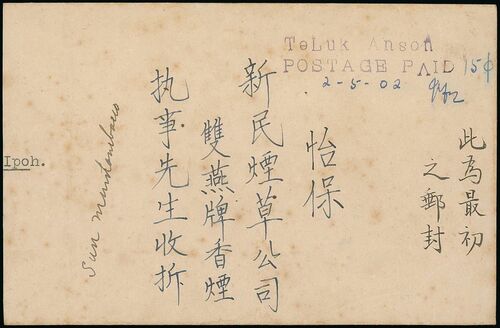 Teluk Anson
POSTAGE PAID 15¢
2-5-02
此為最初
之郵封
怡保
新民煙草公司
雙燕牌香煙
执事先生收拆
Ipoh.